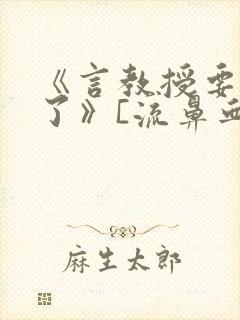 《言教授要
了》[流鼻血
麻生太郎